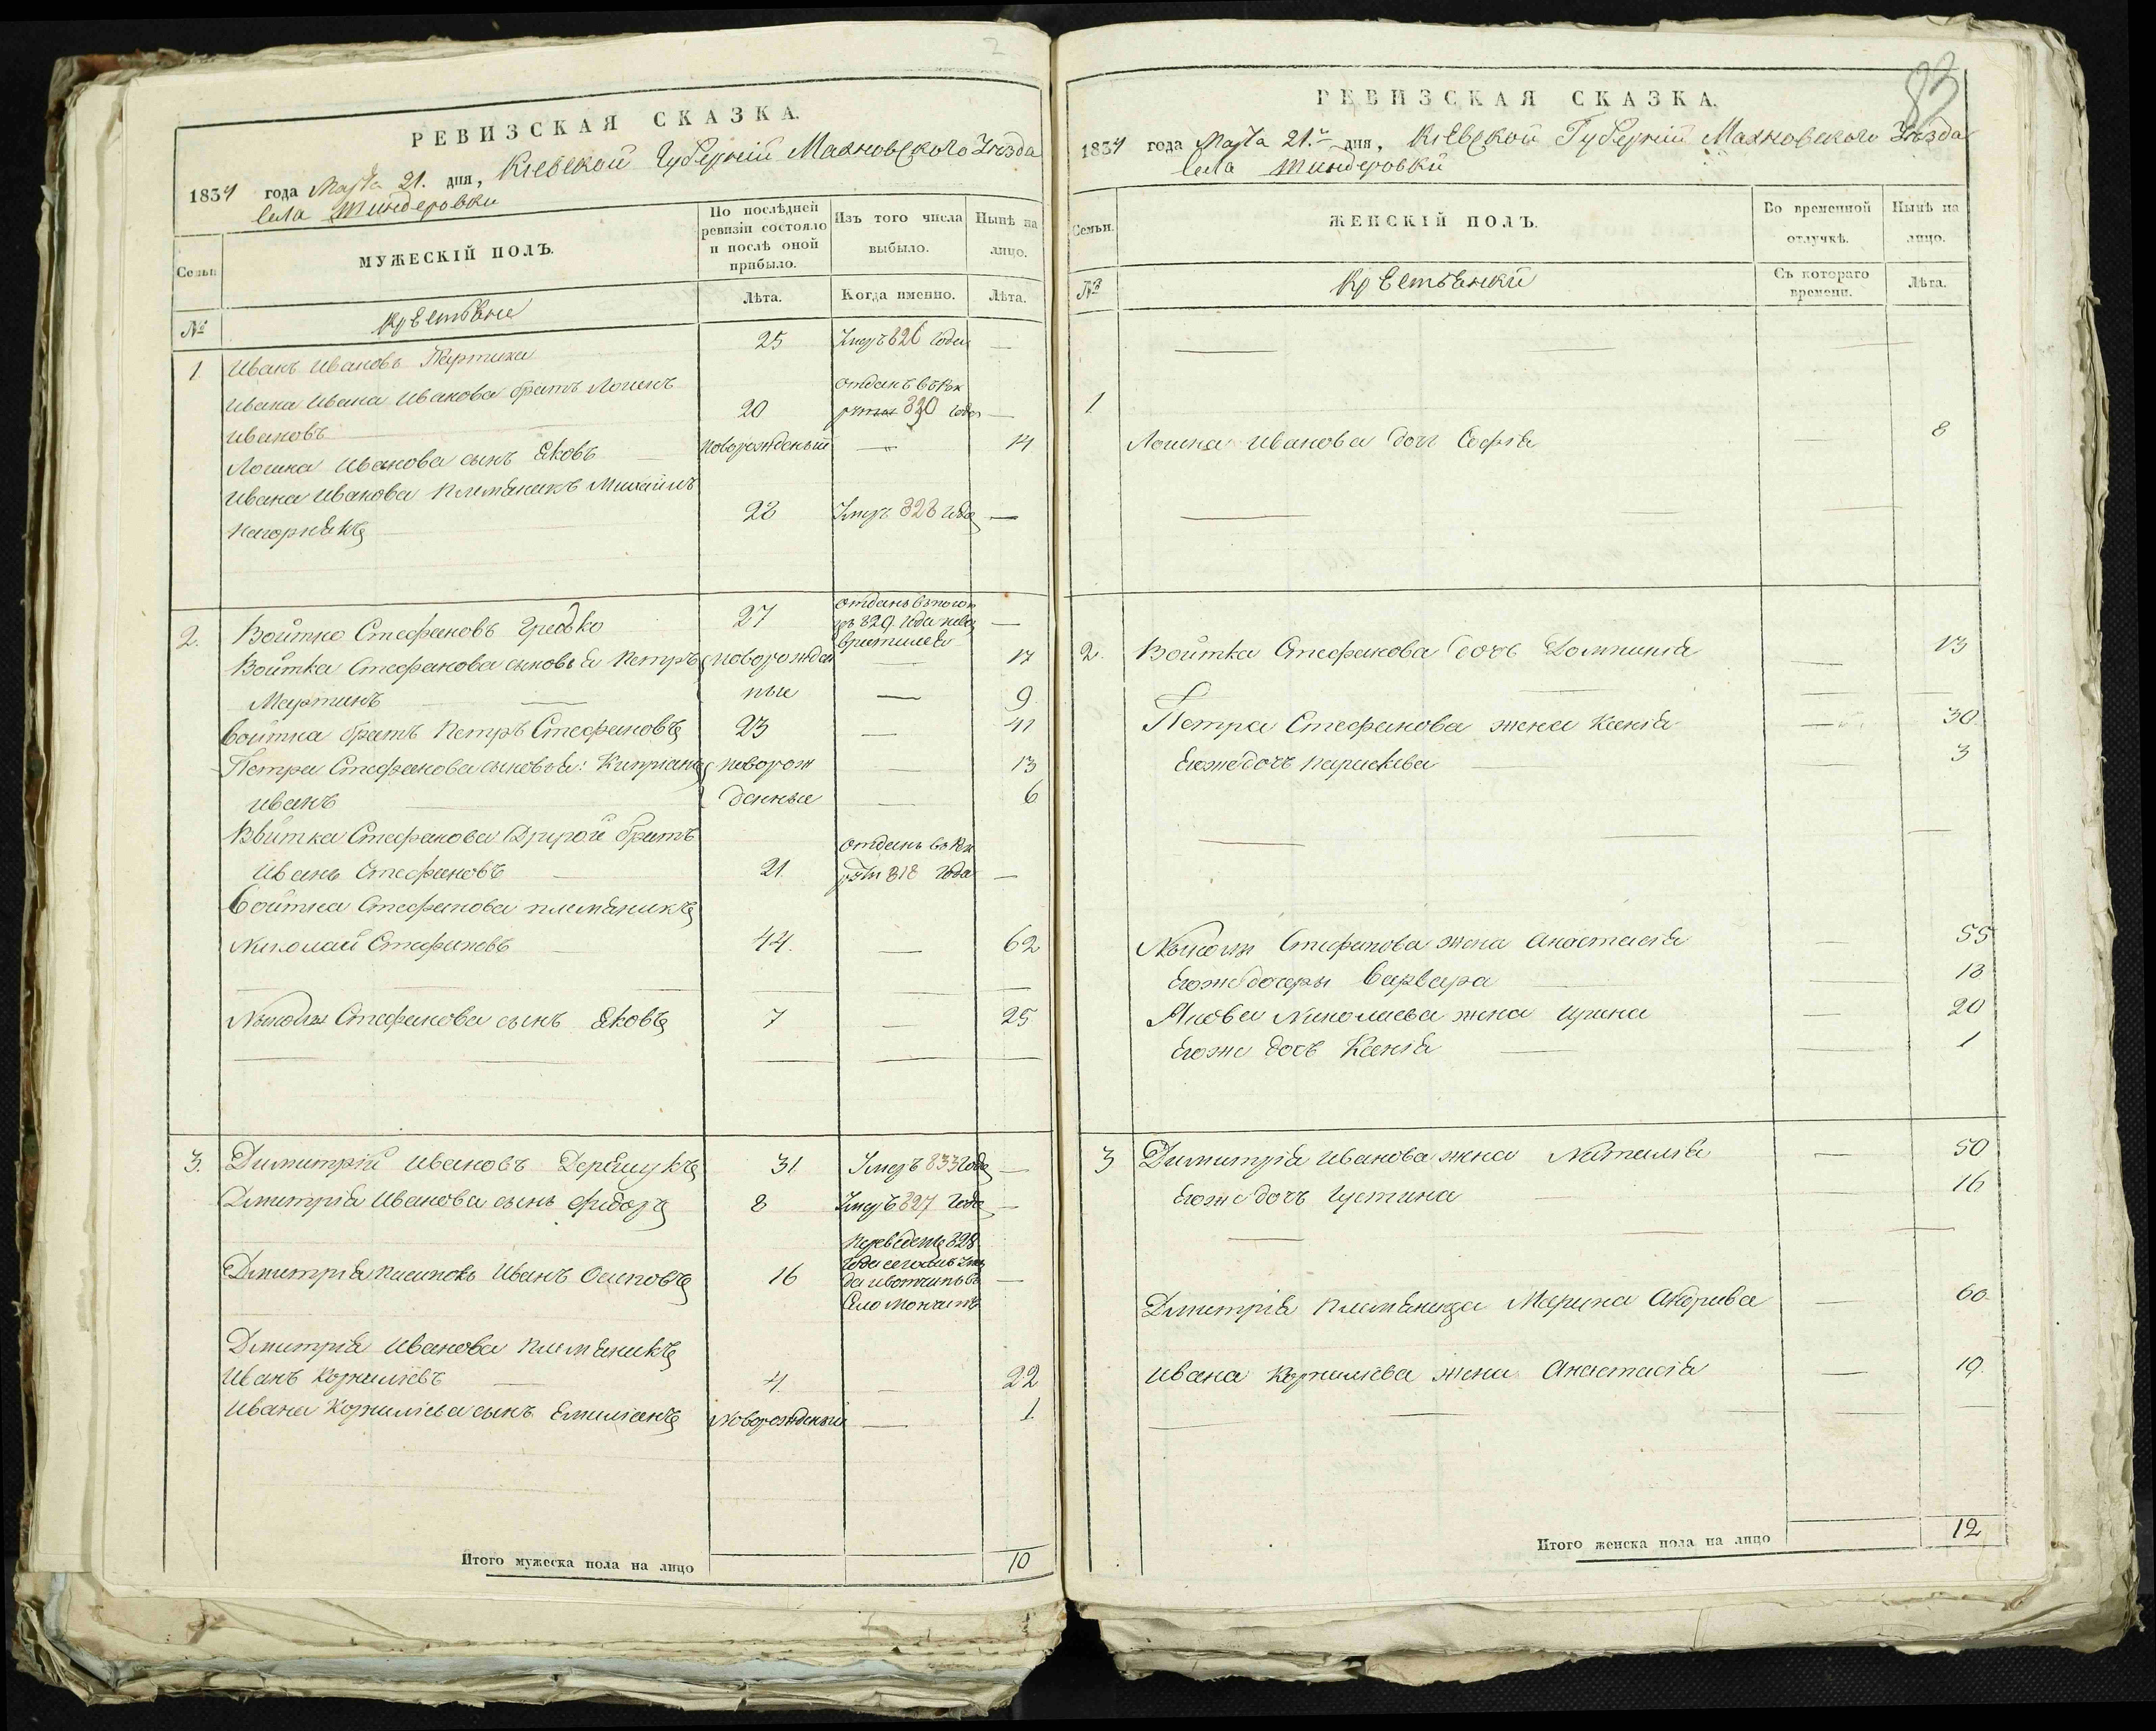 2
РЕВИЗСКАЯ СКАЗКА.
1834 года Марта 21. дня, Кіевской Губерніи Махновского Уѣзда
села Тиндеровки
Семьи
МУЖЕСКІЙ ПОЛЪ.
По послѣдней ревизіи состояло и послѣ оной прибыло.
Изъ того числа выбыло.
Нынѣ на лицо.
№
Крестьяне
Лѣта.
Когда именно.
Лѣта.
1 Иванъ Ивановъ 25 Умеръ 826 года —
Ивана Ивана Иванова братъ Логинъ отданъ въ рек
Ивановъ 20 руты 830 года —
Логина Иванова сынъ Яковъ новорожденый — 14
Ивана Иванова племяникъ Михайло
Нагорнякъ 28 Умеръ 828 года —
2. Войтко Стефановъ Гредько 27 отданъ въ погон
цъ 829. года невоз
вратился —
Войтка Стефанова сыновья Петръ новорожден — 17
Мартинъ ные — 9
Войтка братъ Петръ Стефановъ 23 — 41
Петра Стефанова сыновья: Кипріанъ новорож — 13
Иванъ денные — 6
Войтка Стефанова Другой братъ
Иванъ Стефановъ 21. отданъ въ рек
руты 818 года —
Войтка Стефанова племяникъ
Николай Стефановъ 44. — 62
Николая Стефанова сынъ Яковъ 7 — 25
3. Димитрій Ивановъ Дерещукъ 31 Умеръ 833 года —
Дмитрія Иванова сынъ Федоръ 8 Умеръ 827 года —
Дмитрія пасинокъ Иванъ Осиповъ 16 Переведенъ 828
года
Село —
Дмитрія Иванова племяникъ
Иванъ Корнилієвъ 4 — 22
Ивана Корниліева сынъ Емиліанъ Новорожденый — 1
Итого мужеска пола на лицо 10
83
РЕВИЗСКАЯ СКАЗКА.
1834 года Марта 21.го дня, Кіевской Губерніи Махновского Уѣзда
села Тиндеровки
Семьи.
ЖЕНСКІЙ ПОЛЪ.
Во временной отлучкѣ.
Нынѣ на лицо.
№
Крестьянки
Съ котораго времени.
Лѣта.
1
Логина Иванова доч Софія — 8
2. Войтка Стефанова дочь Домникія — 13
Петра Стефанова жена Ксенія — 30
Егоже дочъ Параскева — 3
Николая Стефанова жена Анастасія — 55
Егоже дочеры Варвара — 18
Якова Николаева жена Ирина — 20
Егоже дочъ Ксенія — 1
3 Димитрія Иванова жена Наталія — 50
Егоже дочъ Густина — 16
Дмитрія племяница Марина Андрива — 60
Ивана Корниліева жена Анастасія — 19.
Итого женска пола на лицо 12